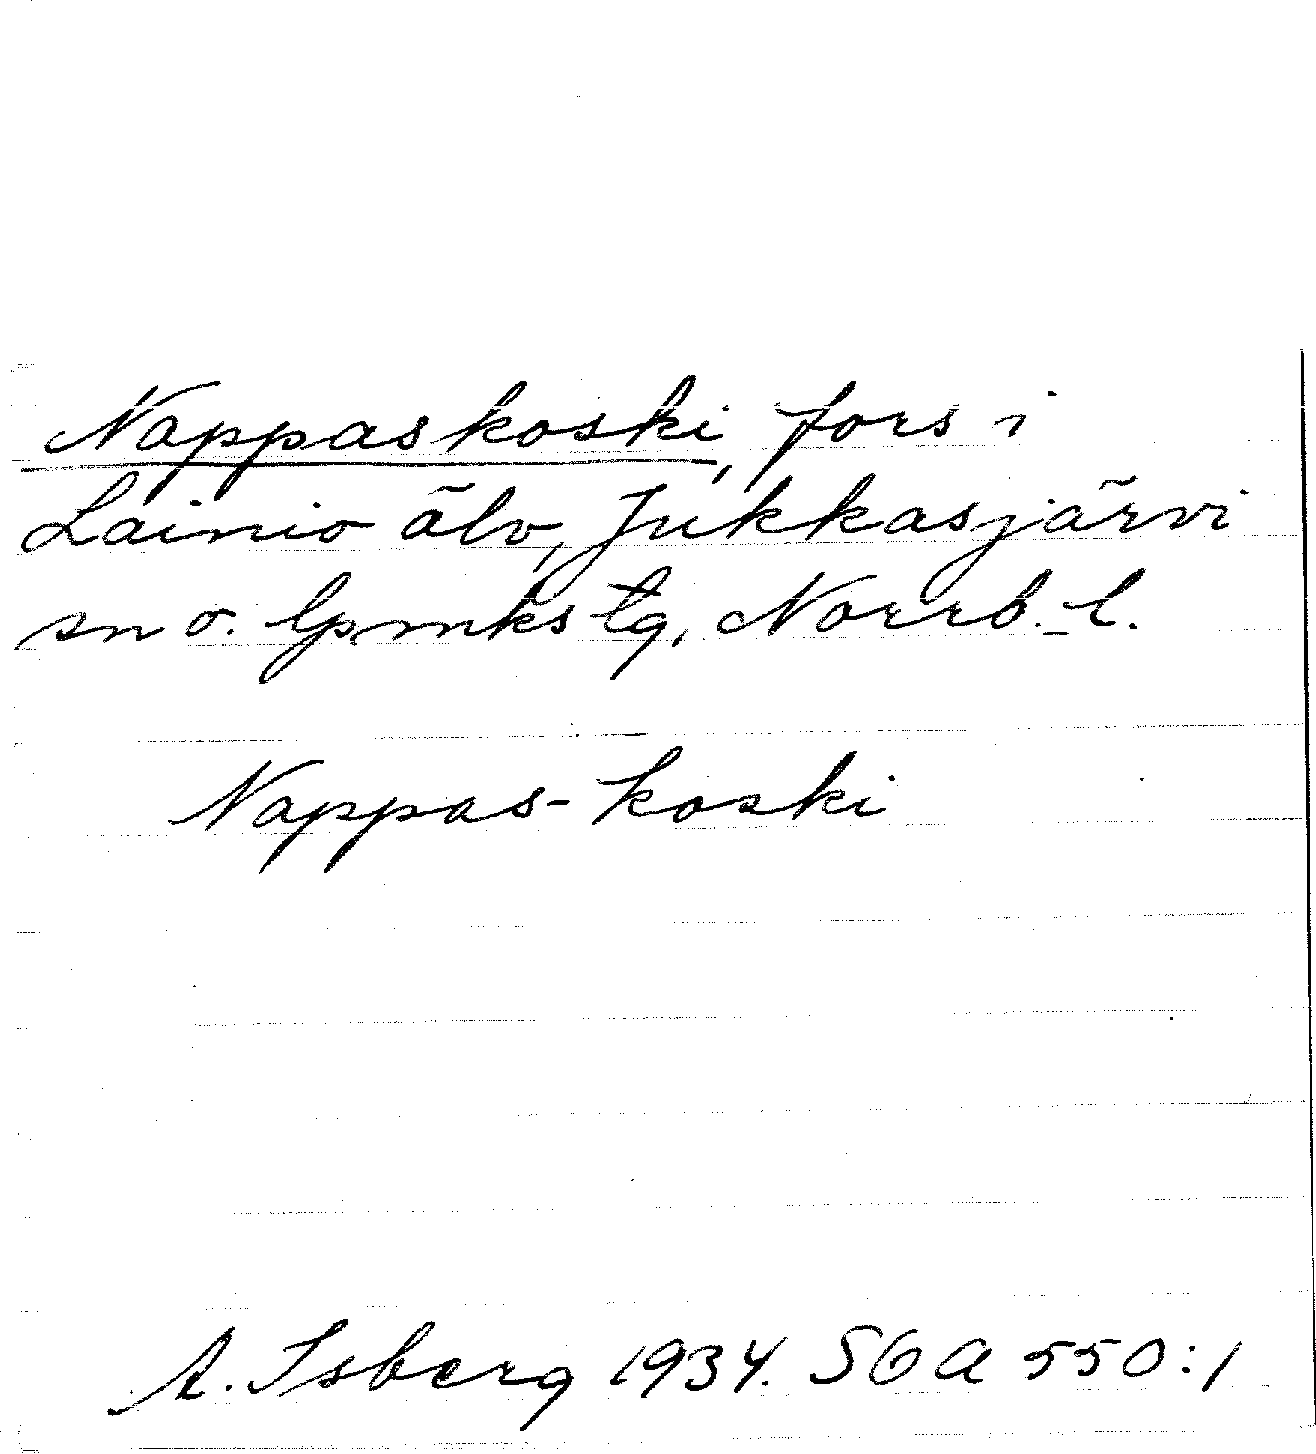 Nappaskoski, fors i
Lainio älv, Jukkasjärvi
sn o. lpmks tg, Norrb. l.
Nappas-koski
A. Isberg 1934. SOA 550:1